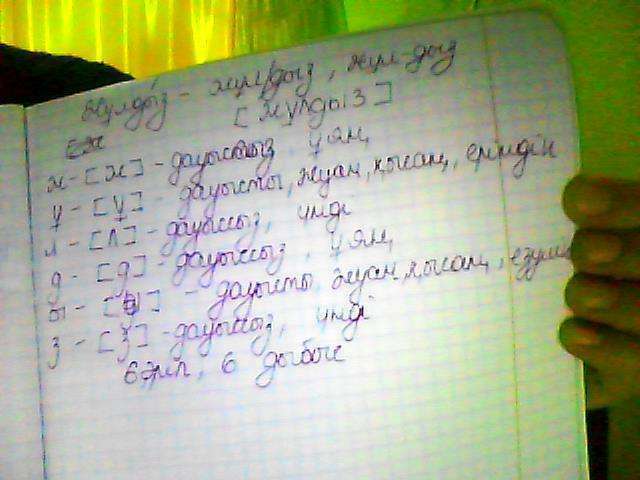 Жұлдыз – жұл/дыз, жұл-дыз
[жұлдыз]
ж - [ж] - дауыссыз, ұяң
ұ - [ұ] - дауысты, жуан, қысаң, еріндік
л - [л] - дауыссыз, үнді
д - [д] - дауыссыз, ұяң,
ы - [ы] - дауысты, жуан, қысаң, езулік
з - [з] - дауыссыз, үнді
6 әріп, 6 дыбыс